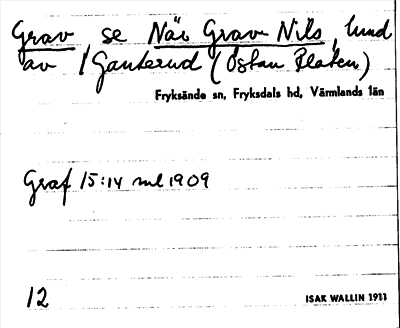 Grav se När Grav Nils, lund
av / Ganterud (Östan Fläten)
Fryksände sn, Fryksdals hd, Värmlands län
Graf 15:14 1909
12
ISAK WALLIN 1911